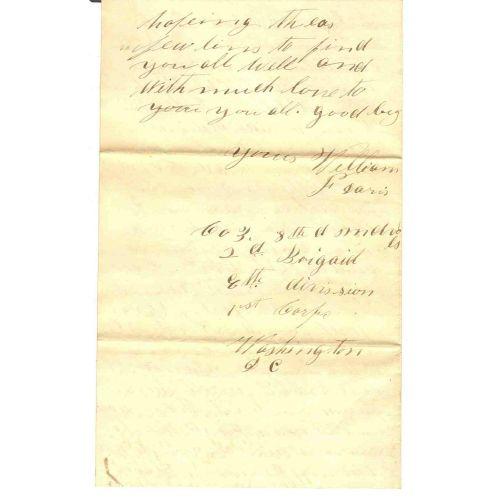 hopeing theas
few lins to find
you all well and
With much love to
you all. good by
Yours William
Co 3. 8th d
2 d. Brigaid
8th. division
1st Corps
Washington
D C